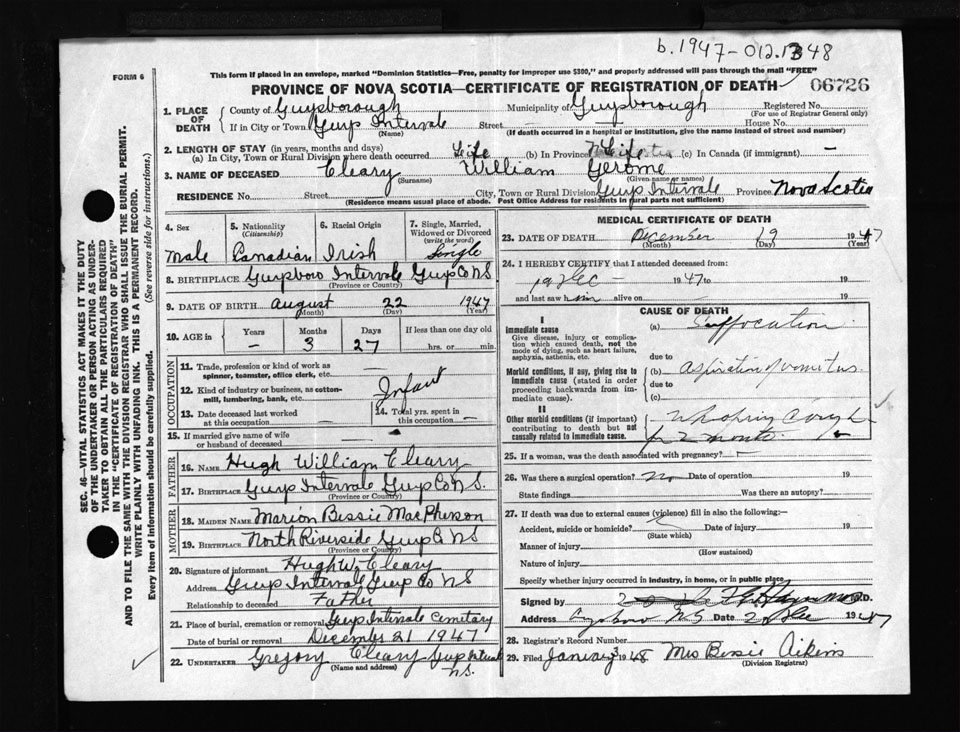 b.1947-012.1348
FORM 6
This form if placed in an envelope, marked "Dominion Statistics—Free, penalty for improper use $300," and properly addressed will pass through the mail "FREE"
PROVINCE OF NOVA SCOTIA—CERTIFICATE OF REGISTRATION OF DEATH
06726
1. PLACE OF DEATH County of Guysborough Municipality of Guysborough Registered No.
(For use of Registrar General only)
If in City or Town Guys Intervale Street House No.
(Name) (If death occurred in a hospital or institution, give the name instead of street and number)
2. LENGTH OF STAY (in years, months and days)
(a) In City, Town or Rural Division where death occurred Life (b) In Province Life (c) In Canada (if immigrant) —
3. NAME OF DECEASED Cleary William Gerome
(Surname) (Given name or names)
RESIDENCE No. Street City, Town or Rural Division Guys Intervale Province Nova Scotia
(Residence means usual place of abode. Post Office Address for residents in rural parts not sufficient)
SEC. 46—VITAL STATISTICS ACT MAKES IT THE DUTY
OF THE UNDERTAKER OR PERSON ACTING AS UNDER-
TAKER TO OBTAIN ALL THE PARTICULARS REQUIRED
IN THE "CERTIFICATE OF REGISTRATION OF DEATH"
AND TO FILE THE SAME WITH THE DIVISION REGISTRAR WHO SHALL ISSUE THE BURIAL PERMIT.
WRITE PLAINLY WITH UNFADING INK. THIS IS A PERMANENT RECORD.
Every item of information should be carefully supplied. (See reverse side for instructions.)
4. Sex 5. Nationality (Citizenship) 6. Racial Origin 7. Single, Married, Widowed or Divorced (write the word)
Male Canadian Irish Single
8. BIRTHPLACE Guysboro Intervale Guys Co NS
(Province or Country)
9. DATE OF BIRTH August 22 1947
(Month) (Day) (Year)
10. AGE in Years Months Days If less than one day old
— 3 27 hrs. or min.
OCCUPATION
11. Trade, profession or kind of work as spinner, teamster, office clerk, etc. —
12. Kind of industry or business, as cotton-mill, lumbering, bank, etc. Infant
13. Date deceased last worked at this occupation — 14. Total yrs. spent in this occupation —
15. If married give name of wife or husband of deceased —
FATHER
16. Name Hugh William Cleary
17. Birthplace Guys Intervale Guys Co N S.
(Province or Country)
MOTHER
18. Maiden Name Marion Bessie MacPherson
19. Birthplace North Riverside Guys Co NS
(Province or Country)
20. Signature of informant Hugh W. Cleary
Address Guys Intervale Guys Co NS
Relationship to deceased Father
21. Place of burial, cremation or removal Guys Intervale Cemetary
Date of burial or removal December 21 1947
22. UNDERTAKER Gregory Cleary Guys Intervale
(Name and address) N.S.
MEDICAL CERTIFICATE OF DEATH
23. DATE OF DEATH December 19 1947
(Month) (Day) (Year)
24. I HEREBY CERTIFY that I attended deceased from:
19 Dec — 1947 to 19
and last saw him alive on — 19
CAUSE OF DEATH
I
Immediate cause (a) Suffocation
Give disease, injury or complication which caused death, not the mode of dying, such as heart failure, asphyxia, asthenia, etc.
due to
Morbid conditions, if any, giving rise to immediate cause (stated in order proceeding backwards from immediate cause).
(b) aspiration of vomitus.
due to
(c)
II
Other morbid conditions (if important) contributing to death but not causally related to immediate cause.
Whooping cough
for 2 months.
25. If a woman, was the death associated with pregnancy? —
26. Was there a surgical operation? No Date of operation 19
State findings Was there an autopsy?
27. If death was due to external causes (violence) fill in also the following:—
Accident, suicide or homicide? Date of injury 19
(State which)
Manner of injury
(How sustained)
Nature of injury
Specify whether injury occurred in industry, in home, or in public place
Signed by M.D.
Address NS Date 20 Dec 1947
28. Registrar's Record Number
29. Filed January 3 1948 Mrs Bessie Aikins
(Division Registrar)